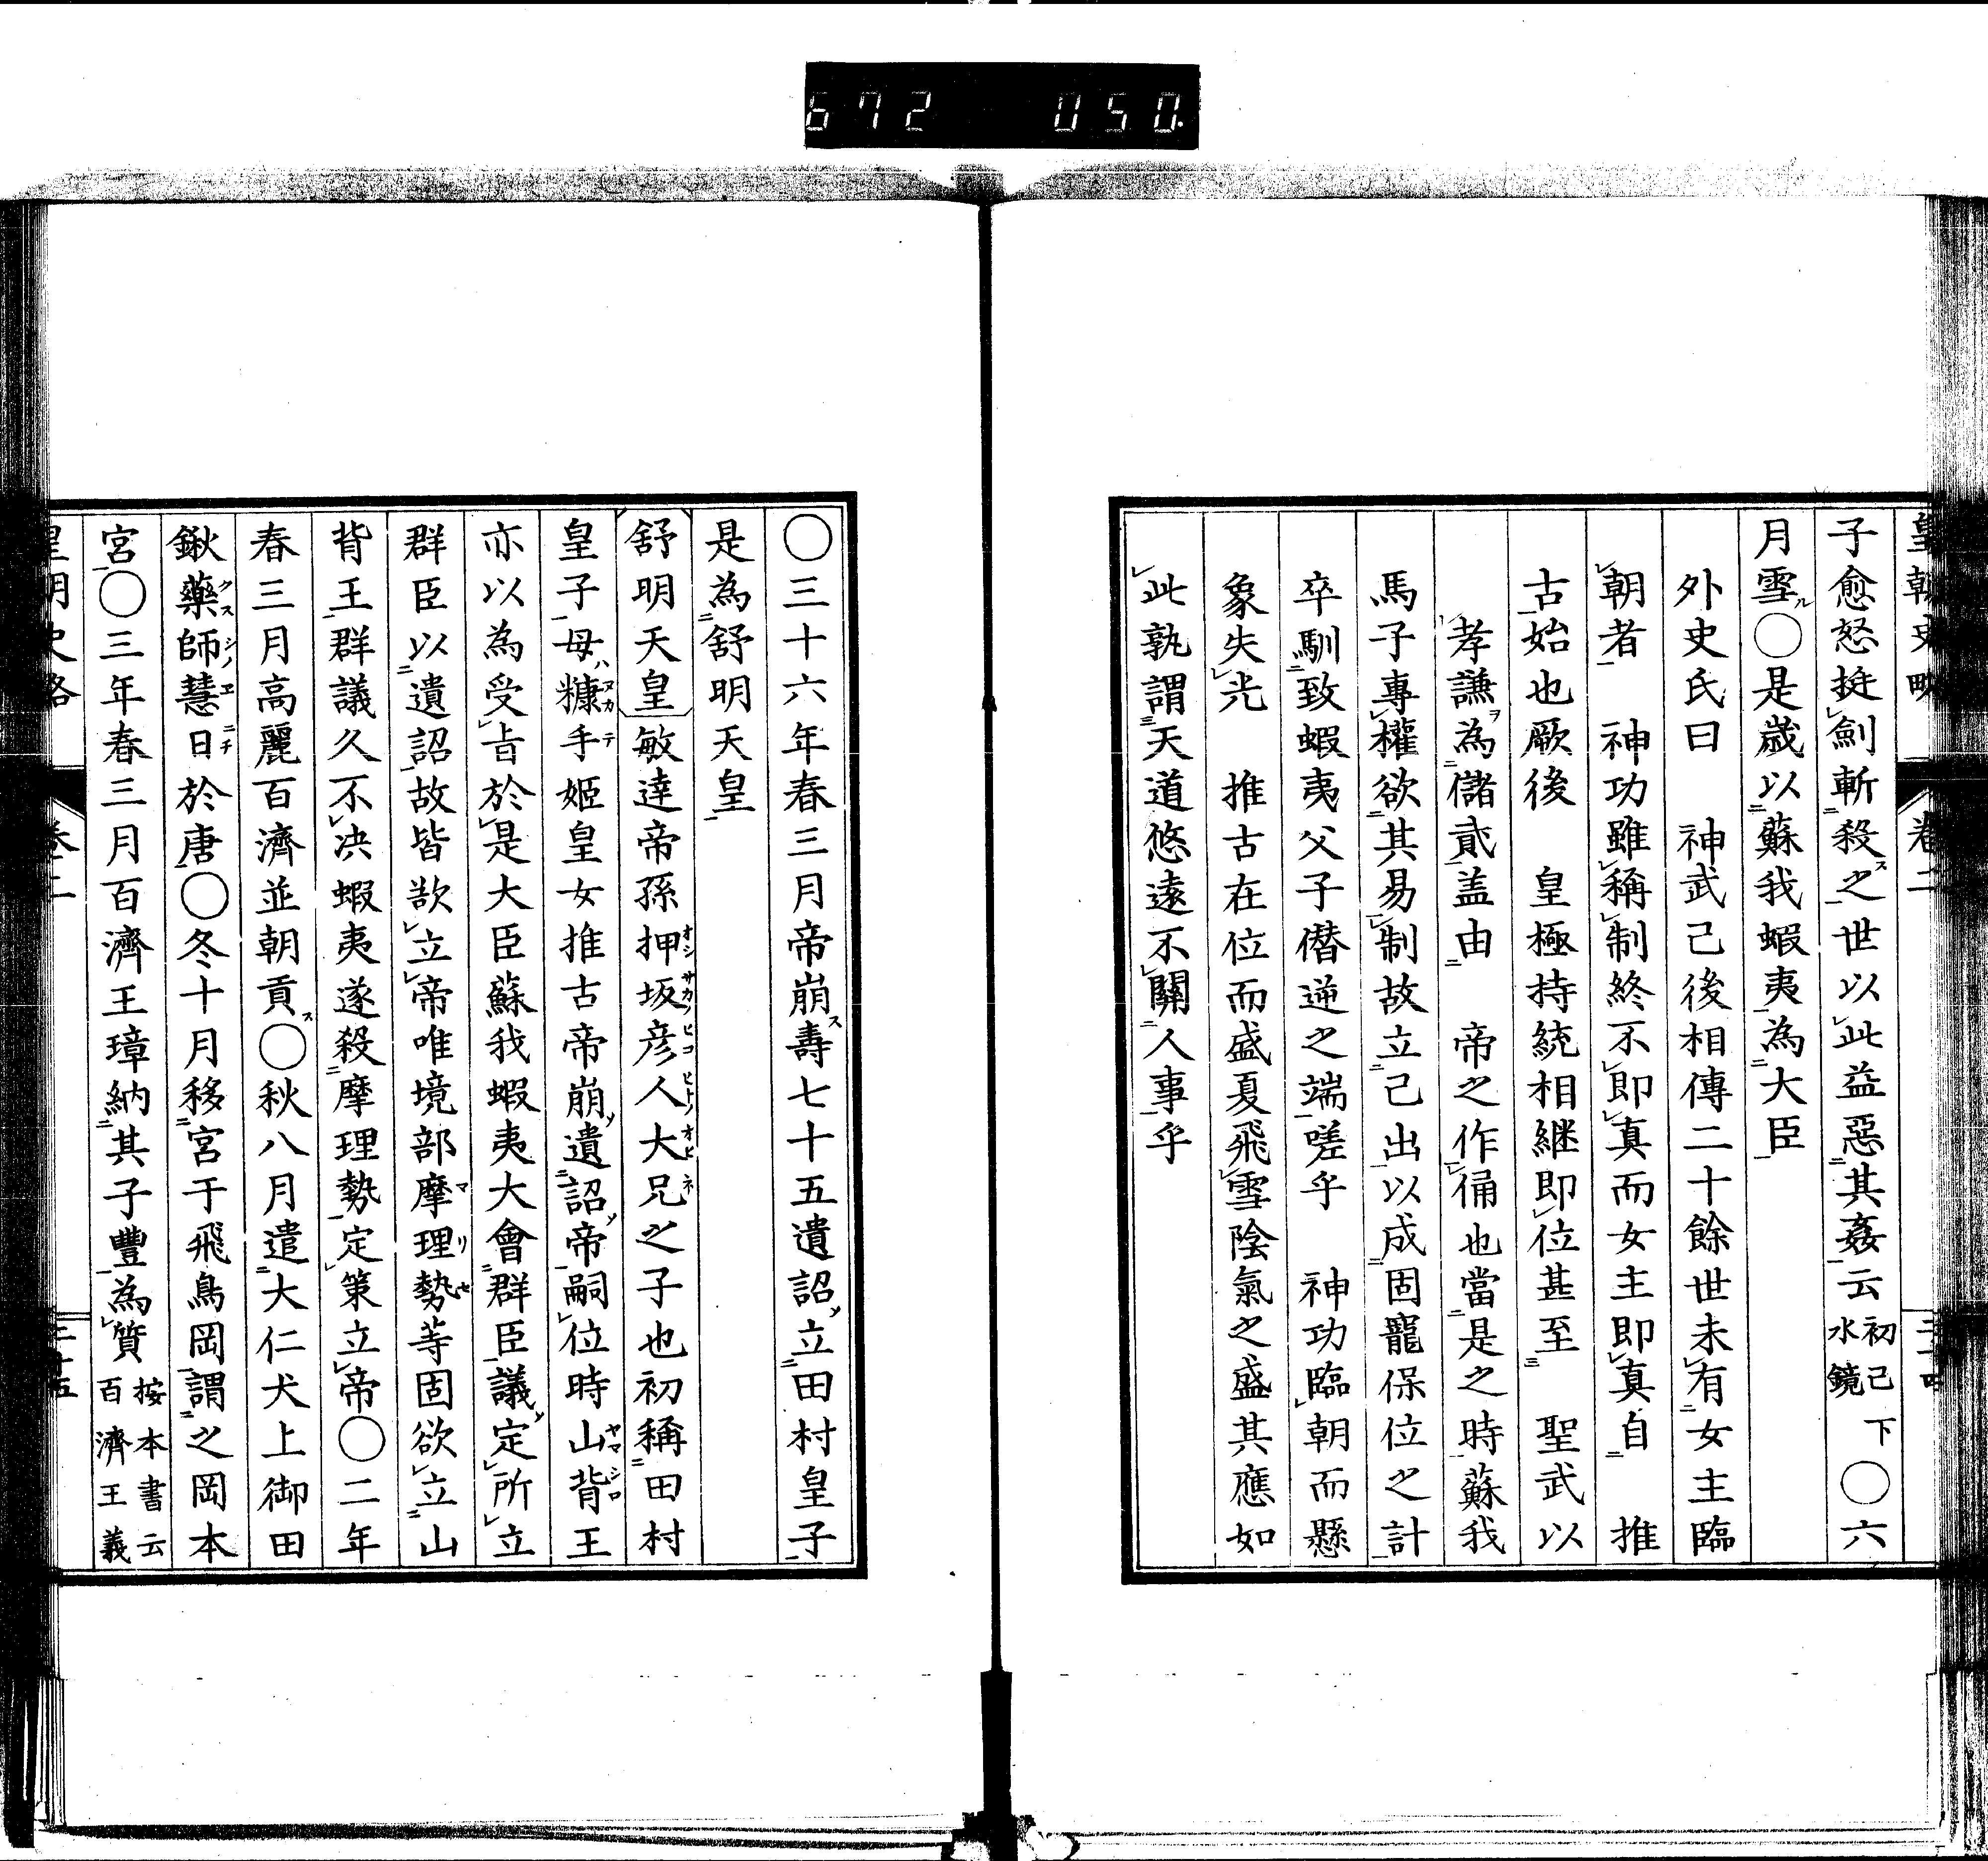 672 050.
皇朝史略 卷二
子愈怒挺劍斬殺之世以此益惡其姦云初己水鏡下〇六
月雪〇是歲以蘇我蝦夷為大臣
外史氏曰 神武己後相傳二十餘世未有女主臨
朝者 神功雖稱制終不即真而女主即真自 推
古始也厥後 皇極持統相繼即位甚至 聖武以
孝謙為儲貳盖由 帝之作俑也當是之時蘇我
馬子專權欲其易制故立己出以成固寵保位之計
卒馴致蝦夷父子僭逆之端嗟乎 神功臨朝而懸
象失光 推古在位而盛夏飛雪陰氣之盛其應如
此孰謂天道悠遠不關人事乎
〇三十六年春三月帝崩壽七十五遺詔立田村皇子
是為舒明天皇
舒明天皇敏達帝孫押坂彦人大兄之子也初稱田村
皇子母糠手姬皇女推古帝崩遺詔帝嗣位時山背王
亦以為受旨於是大臣蘇我蝦夷大會群臣議定所立
群臣以遺詔故皆欲立帝唯境部摩理勢等固欲立山
背王群議久不决蝦夷遂殺摩理勢定策立帝〇二年
春三月高麗百濟並朝貢〇秋八月遣大仁犬上御田
鍬藥師慧日於唐〇冬十月移宮于飛鳥岡謂之岡本
宮〇三年春三月百濟王璋納其子豐為質按本書云百濟王義